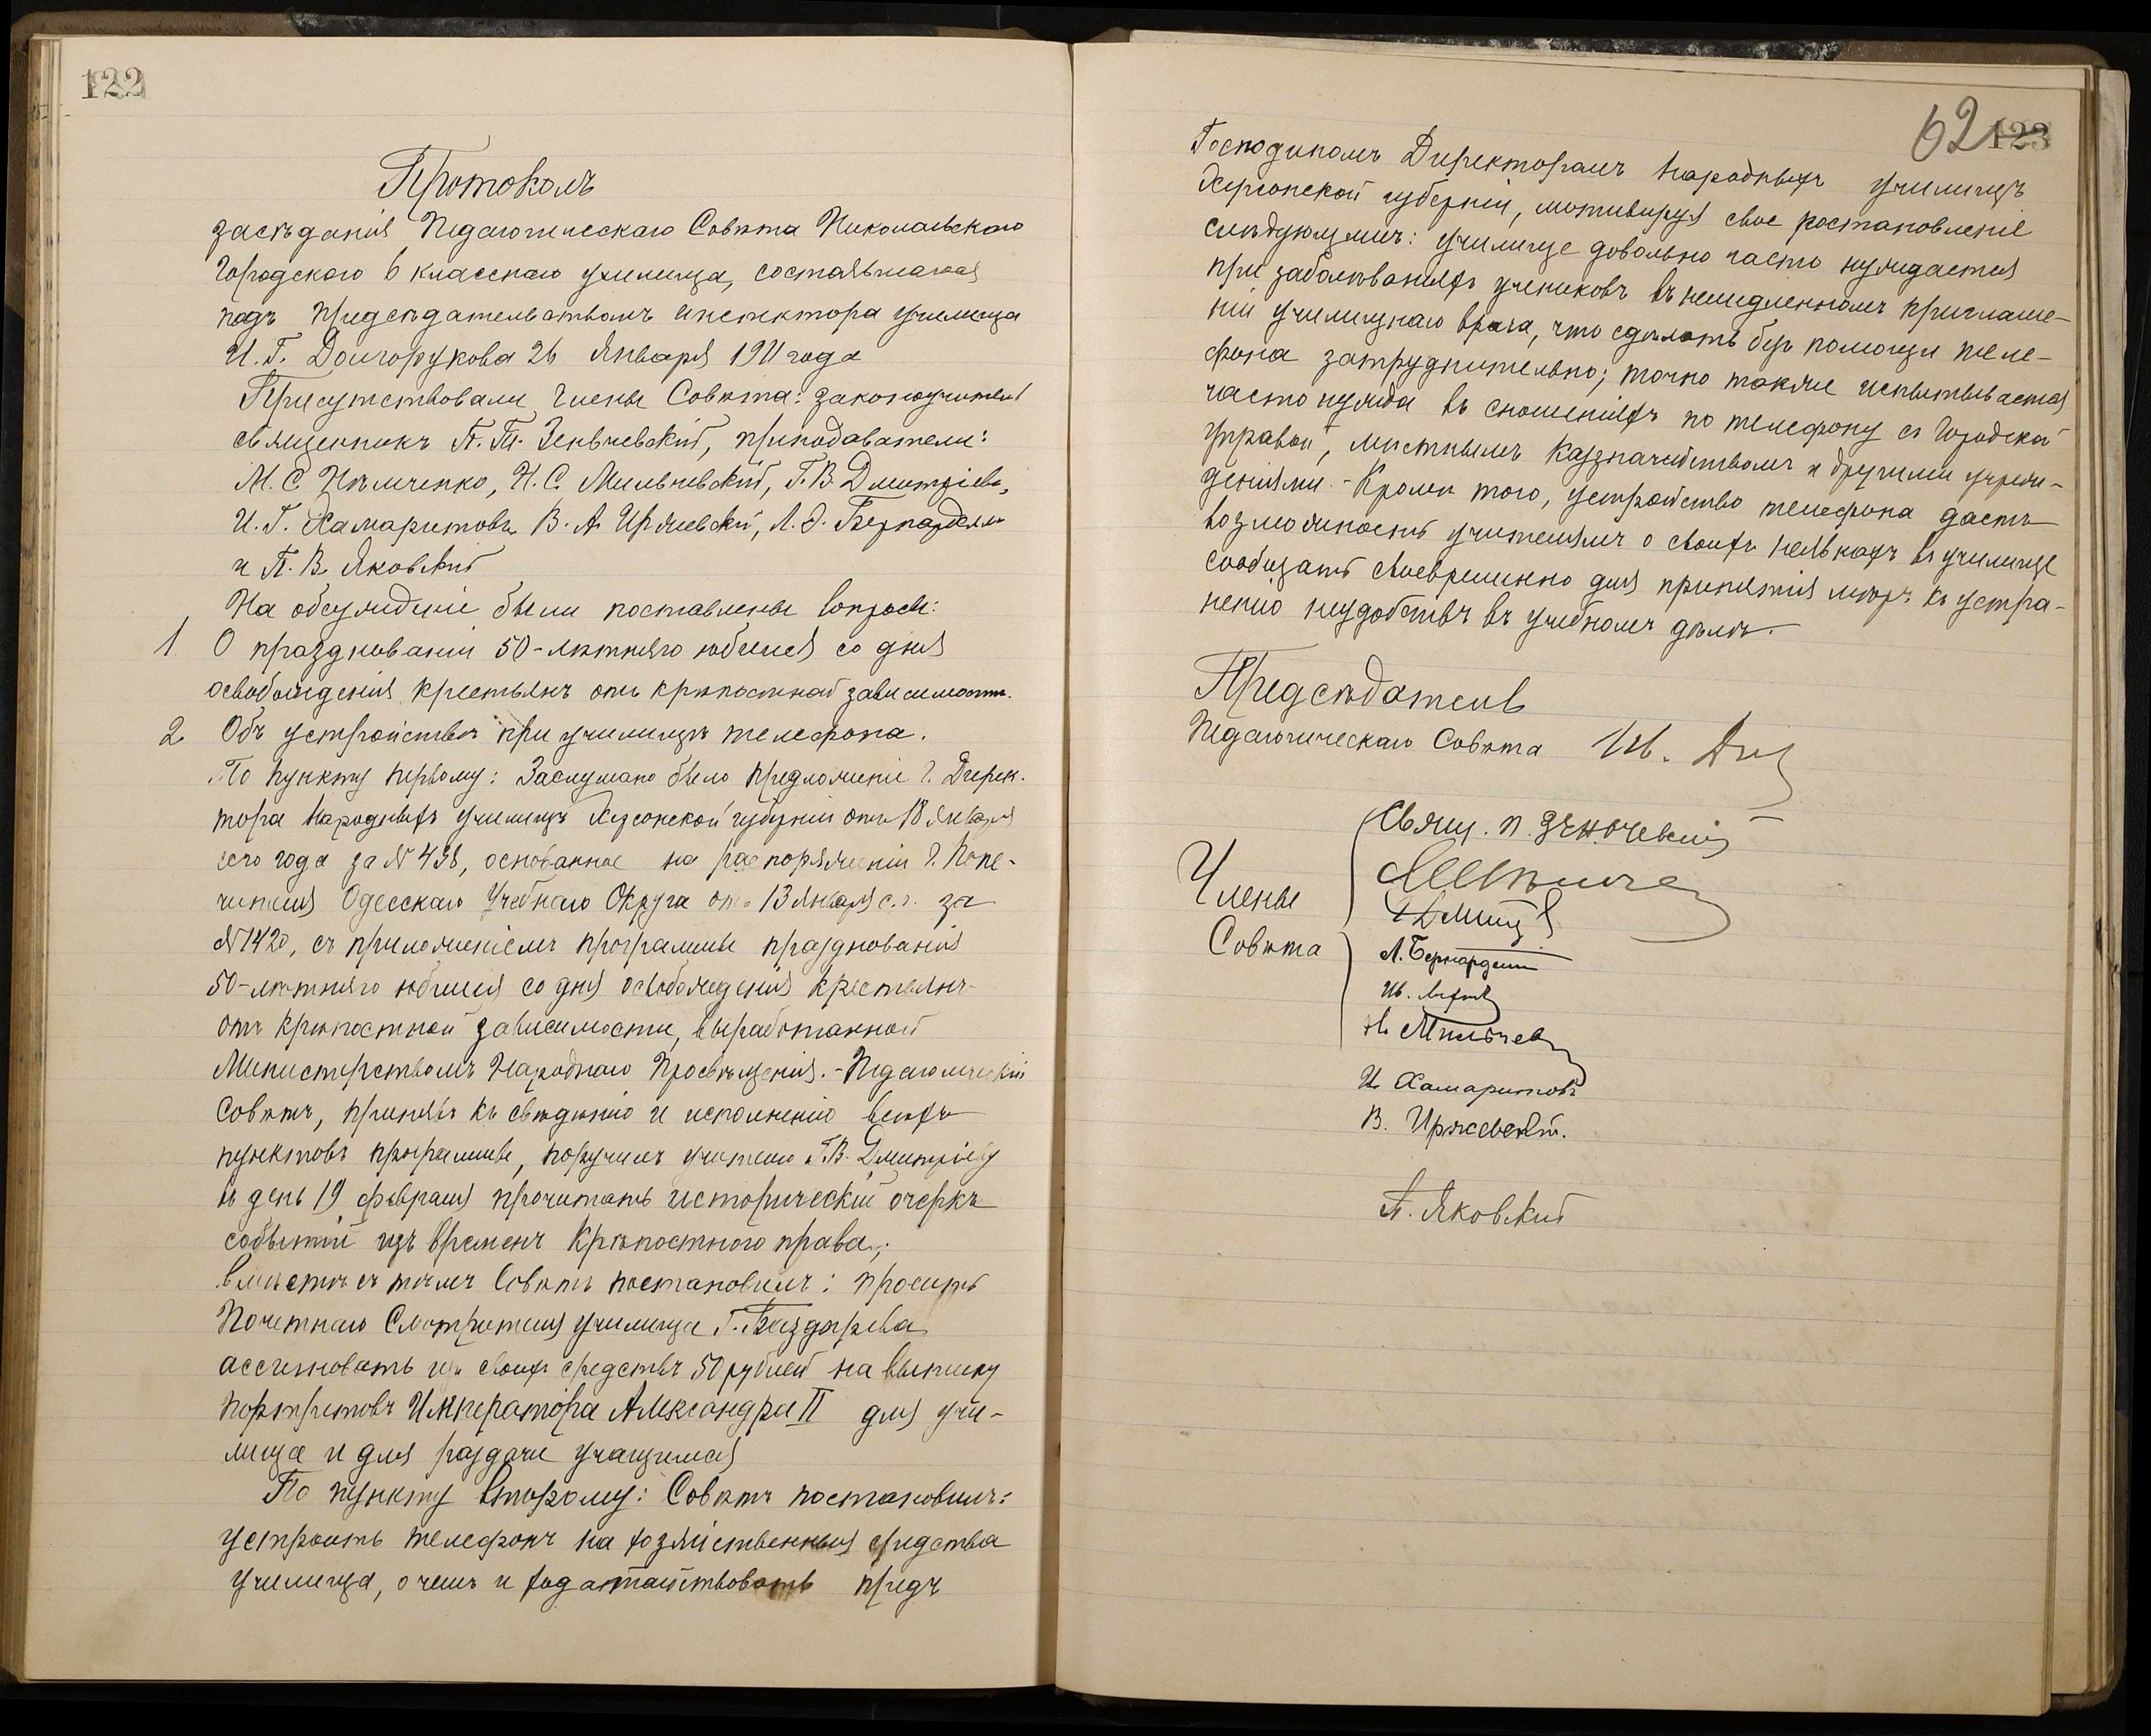 122
Протоколъ
засѣданія Педагогическаго Совѣта Николаевскаго
Городского 6 класснаго училища, состоявшагося
подъ предсѣдательствомъ инспектора училища
И. Г. Долгорукова 26 Января 1911 года
Присутствовали Члены Совѣта: законоучитель
священникъ П. Зенькевскій, преподаватели:
М. С. Ильченко, Н. С. Мильчевскій, Г. В. Дмитріевъ,
И. Г. Хамаритовъ, В. А. Иржевскій, Л. Э. Бернардели
и П. В. Яковскій
На обсужденіе были поставлены вопросы:
1. О празднованіи 50-лѣтняго юбилея со дня
освобожденія крестьянъ отъ крѣпостной зависимости.
2. Объ устройствѣ при училищѣ телефона.
По пункту первому: Заслушано было предложеніе Г. Дирек-
тора Народныхъ училищъ Херсонской губерніи отъ 18 Января
сего года за № 438, основанное на распоряженіи Г. Попе-
чителя Одесскаго Учебнаго Округа отъ 13 Января с. г. за
№ 1420, съ приложеніемъ программы празднованія
50-лѣтняго юбилея со дня освобожденія крестьянъ
отъ крѣпостной зависимости, выработанной
Министерствомъ Народнаго Просвѣщенія. - Педагогическій
Совѣтъ, принявъ къ свѣдѣнію и исполненію всѣхъ
пунктовъ программы, поручилъ учителю Г. В. Дмитріеву
въ день 19 февраля прочитать историческій очеркъ
событій изъ временъ Крѣпостного права;
вмѣстѣ съ тѣмъ Совѣтъ постановилъ: просить
Почетнаго Смотрителя училища Г. Баздырева
ассигновать изъ своихъ средствъ 50 рублей на выписку
портретовъ Императора Александра II для учи-
лища и для раздачи учащимся
По пункту второму: Совѣтъ постановилъ:
устроить телефонъ на хозяйственныя средства
училища, о чемъ и ходатайствовать предъ
62 123
Господиномъ Директоромъ Народныхъ училищъ
Херсонской губерніи, мотивируя свое постановленіе
слѣдующимъ: училище довольно часто нуждается
при заболѣваніяхъ учениковъ въ немедленномъ приглаше-
ніи училищнаго врача, что сдѣлать безъ помощи теле-
фона затруднительно; точно также испытывается
часто нужда въ сношеніяхъ по телефону съ Городской
Управой, мѣстнымъ Казначействомъ и другими учреж-
деніями. - Кромѣ того, устройство телефона дастъ
возможность учителямъ о своихъ неявкахъ въ училище
сообщать своевременно для принятія мѣръ къ устра-
ненію неудобствъ въ учебномъ дѣлѣ.
Предсѣдатель
Педагогическаго Совѣта Ив.
Члены
Совѣта
Свящ. П. Зенькевскій
Л. Бернардели
Н. Мильчев
И. Хамаритовъ
В. Иржевскій.
П. Яковскій